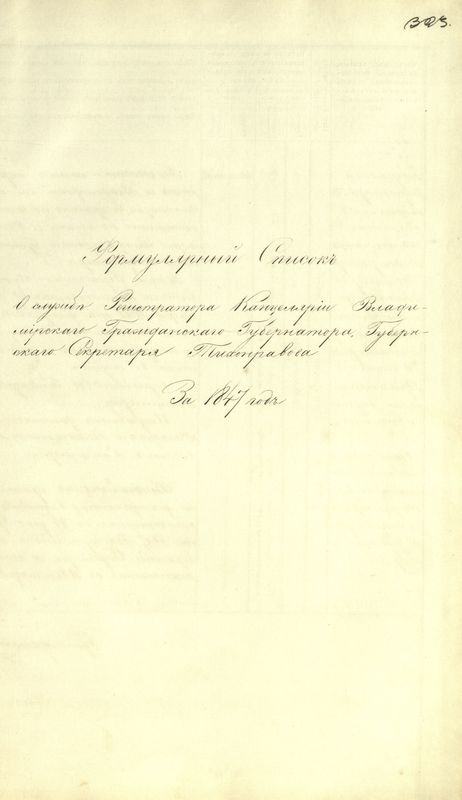 323.
Формулярный Списокъ
О службѣ Регистратора Канцелляріи Влади-
мірскаго Гражданскаго Губернатора, Губерн-
скаго Секретаря Тихонравова
За 1847 годъ